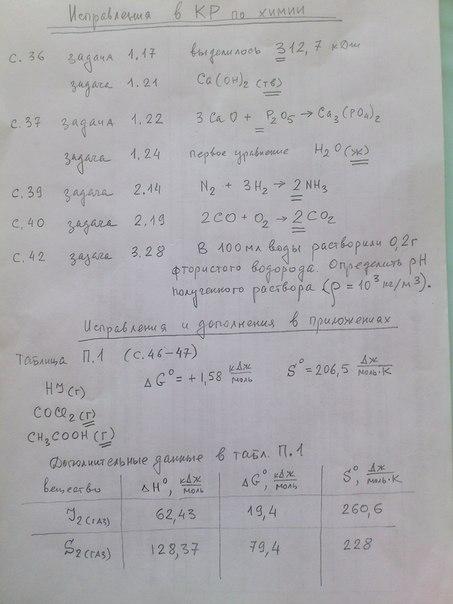 Исправления в КР по химии
с. 36 задача 1.17 выделилось 312,7 кДж
задача 1.21 Ca(OH)₂ (тв)
с. 37 задача 1.22 3CaO + P₂O₅ → Ca₃(PO₄)₂
задача 1.24 первое уравнение H₂O (ж)
с. 39 задача 2.14 N₂ + 3H₂ → 2NH₃
с. 40 задача 2.19 2CO + O₂ → 2CO₂
с. 42 задача 3.28 В 100 мл воды растворили 0,2г
фтористого водорода. Определить pH
полученного раствора (ρ = 10³ кг/м³).
Исправления и дополнения в приложениях
Таблица П.1 (с. 46-47)
HJ(г) ΔG° = +1,58 кДж/моль S° = 206,5 Дж/моль·К
COCl₂(г)
CH₃COOH(г)
Дополнительные данные в табл. П.1
вещество ΔH°, кДж/моль ΔG°, кДж/моль S°, Дж/моль·К
J₂(газ) 62,43 19,4 260,6
S₂(газ) 128,37 79,4 228